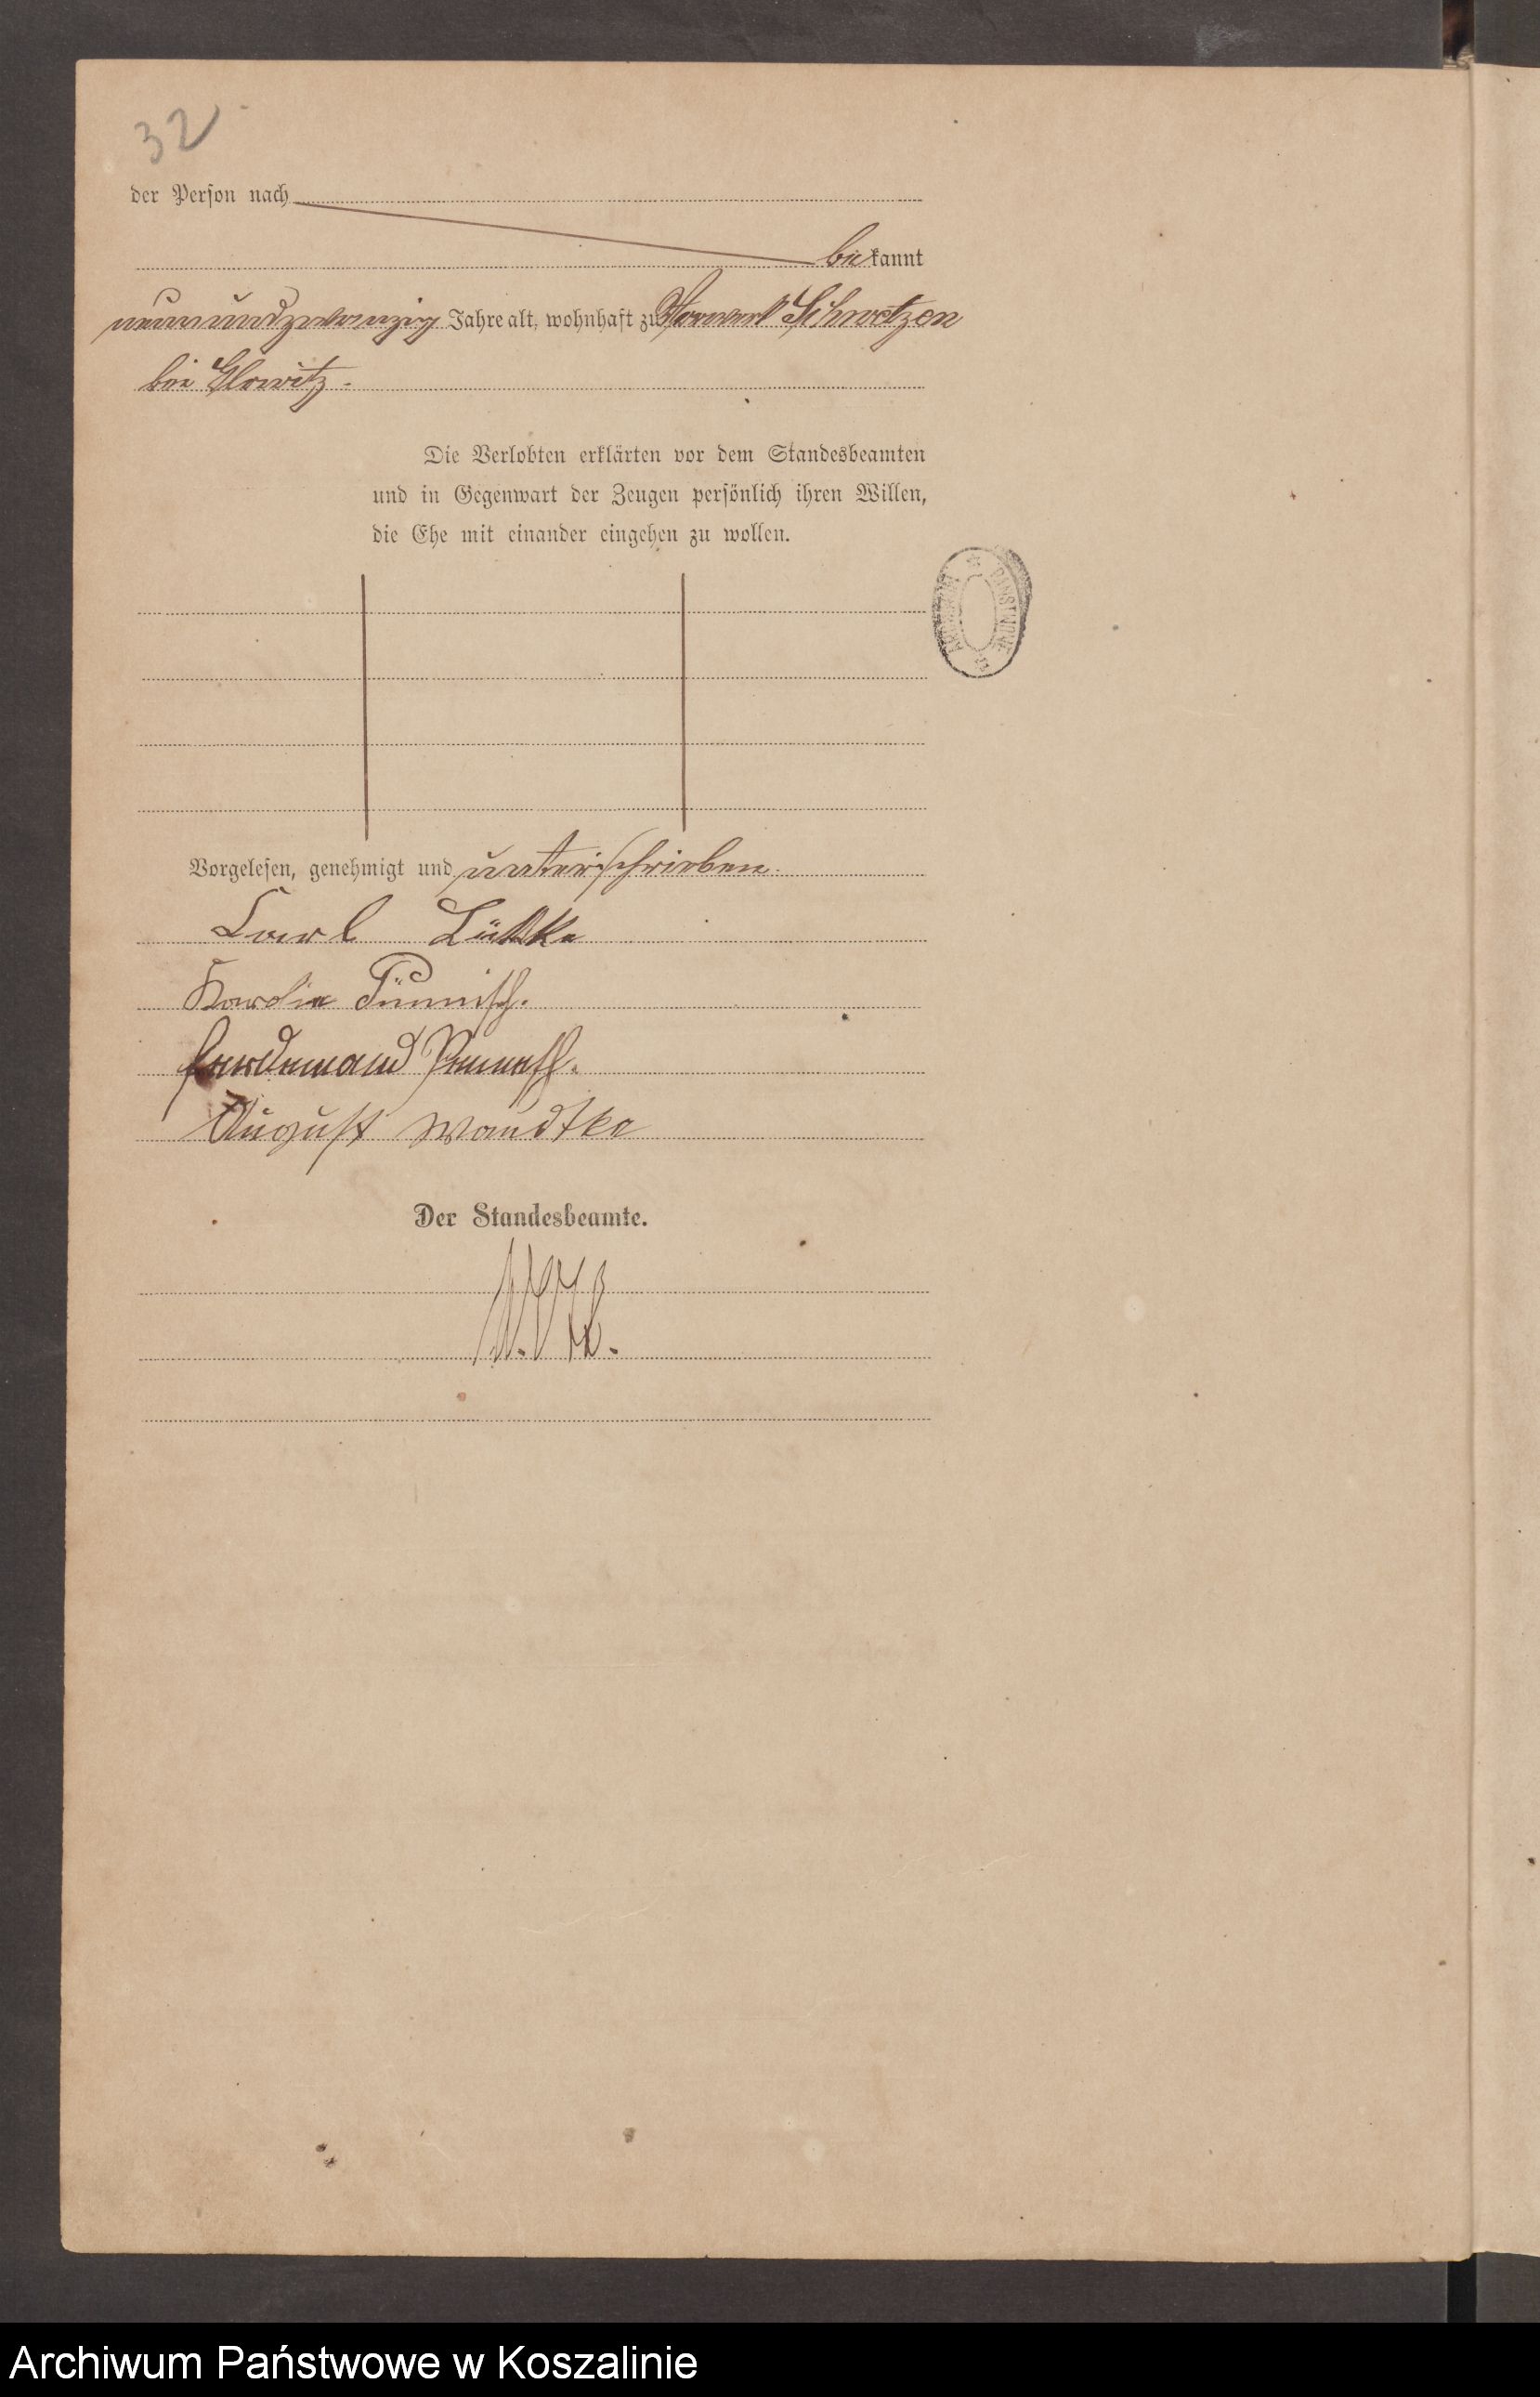 32
der Person nach
bekannt
neunundzwanzig Jahre alt, wohnhaft zu Vorwerk Schwetzen
bei Glowitz.
Die Verlobten erklärten vor dem Standesbeamten
und in Gegenwart der Zeugen persönlich ihren Willen,
die Ehe mit einander eingehen zu wollen.
Vorgelesen, genehmigt und unterschrieben.
Carl Lübke
Karolin
Ferdinand
August Wandtke
Der Standesbeamte.
Archiwum Państwowe w Koszalinie